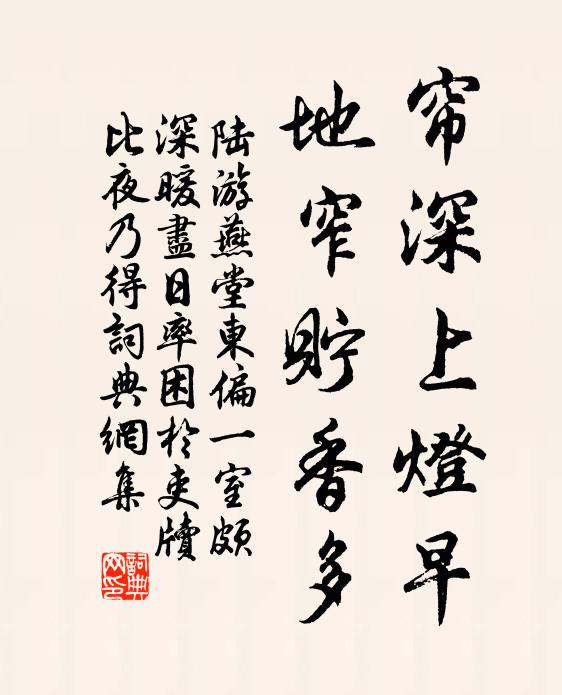 帘深上燈早
地窄貯香多
陆游燕堂東偏一室頗
深暖盡日率困於吏牘
比夜乃得詞典網集
詞典
网印